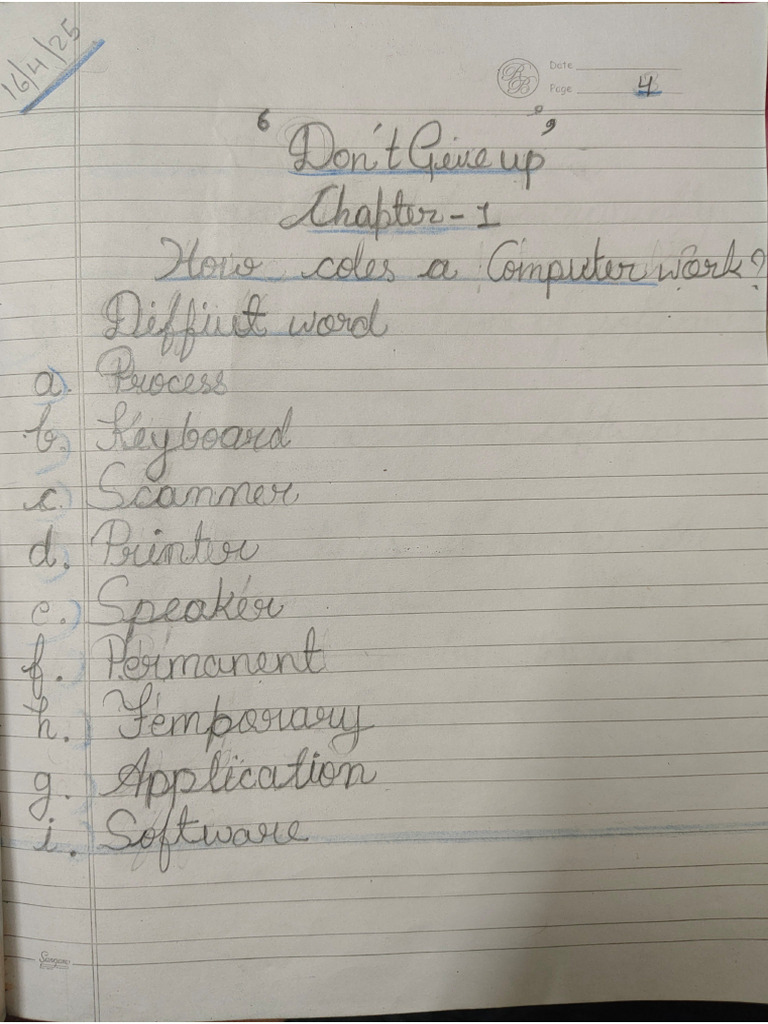 16/4/25
Date
Page 4
‘Don't Give up’
Chapter - 1
How coles a Computer work?
Diffiult word
a. Process
b. Keyboard
c. Scanner
d. Printer
e. Speaker
f. Permanent
h. Temporary
g. Application
i. Software
Sungaru